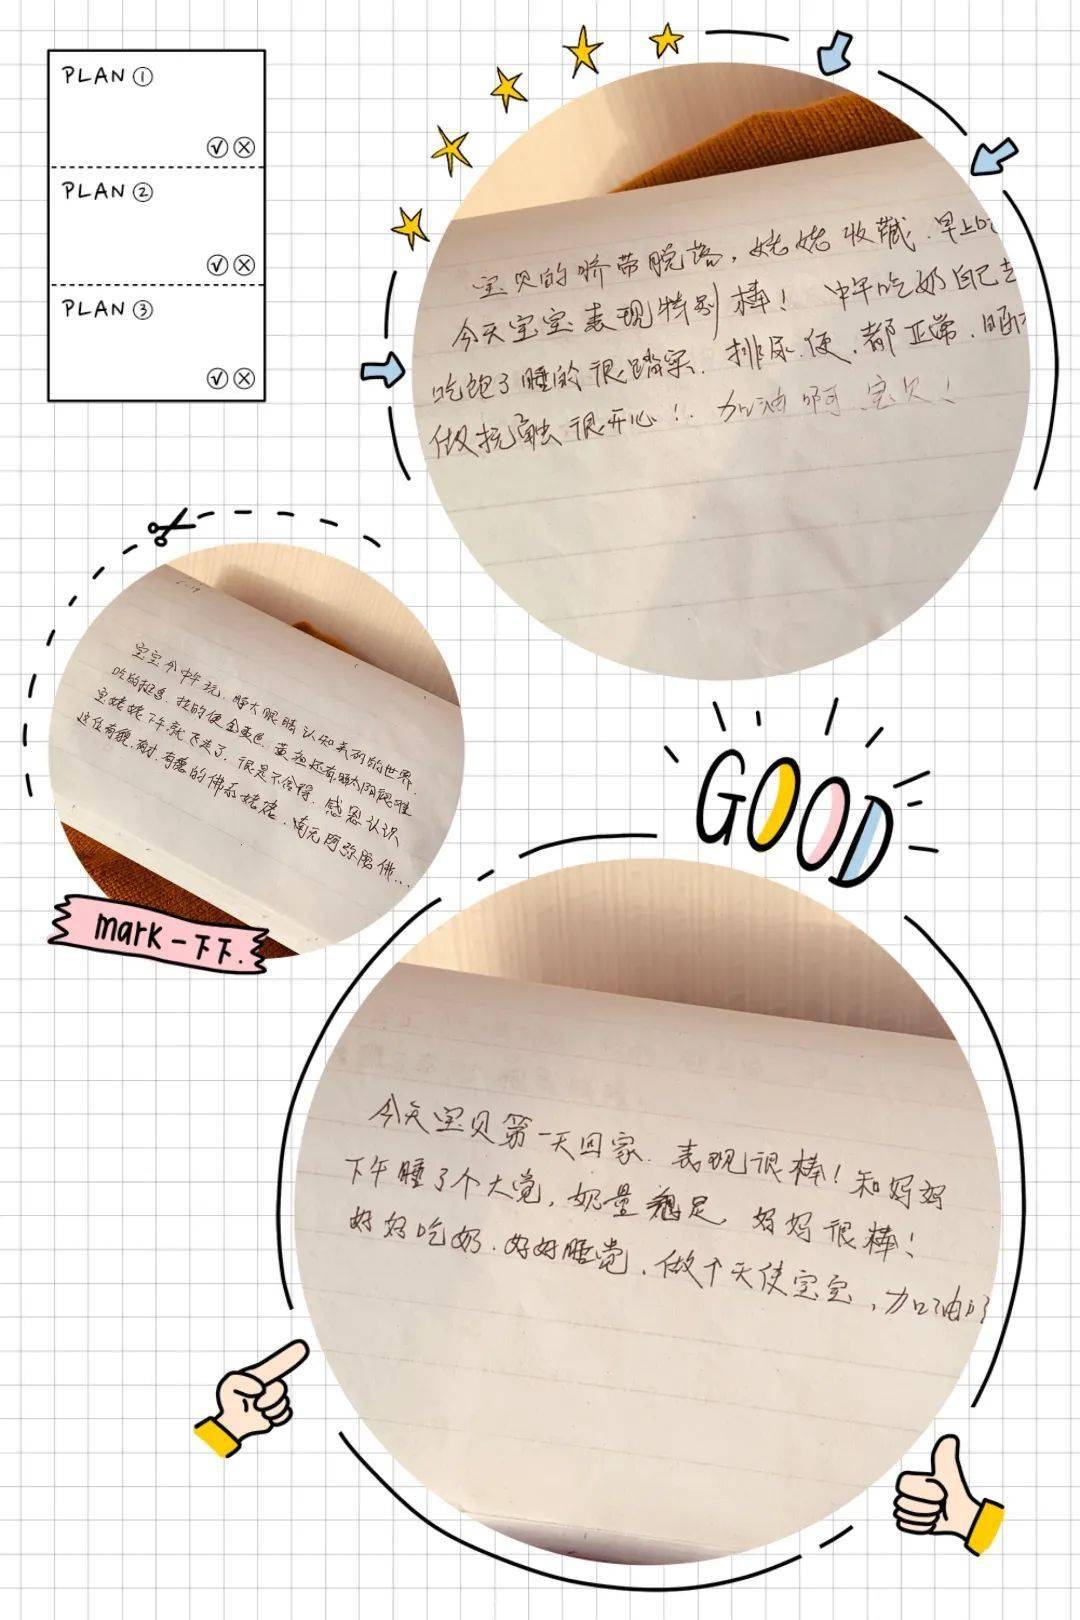 PLAN ①
PLAN ②
PLAN ③
宝贝的脐带脱落，姥姥收藏.早上
今天宝宝表现特别棒！中午吃奶自己
吃饱了睡的很踏实.排尿.便.都正常.
做抚触很开心！.加油啊.宝贝！
宝宝今中午玩.睁大眼睛认知美丽的世界.
吃的挺多.拉的便金黄色.黄疸还有晒太阳
宝姥姥下午就飞走了.很是不舍得.感恩认识
这位有貌.有才.有德的佛系姥姥.南无阿弥陀佛...
mark一下下.
GOOD
今天宝贝第一天回家.表现很棒！和妈妈
下午睡了个大觉，奶量充足.妈妈很棒！
好好吃奶.好好睡觉.做个天使宝宝，加油